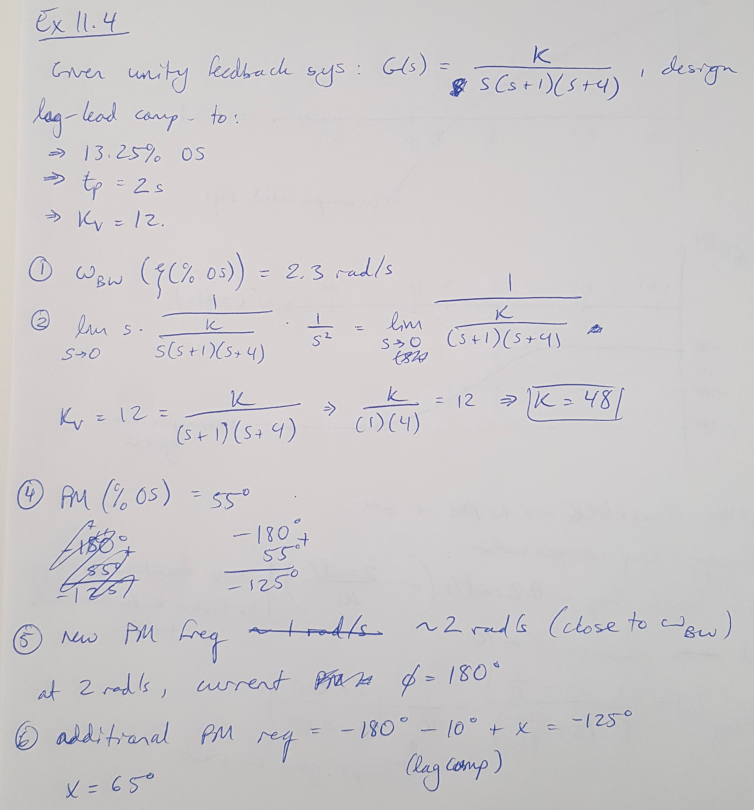 Ex 11.4
Given unity feedback sys: G(s) = K / s(s+1)(s+4) , design
lag-lead comp. to:
⇒ 13.25% OS
⇒ tp = 2s
⇒ Kv = 12.
① ωBW (ξ(% OS)) = 2.3 rad/s
② lim s→0 s · 1 / (K / s(s+1)(s+4)) · 1/s² = lim s→0 1 / (K / (s+1)(s+4))
Kv = 12 = K / (s+1)(s+4) ⇒ K / (1)(4) = 12 ⇒ K = 48
④ PM (% OS) = 55°
-180° +
55°
-125°
-180° +
55°
-125°
⑤ new PM freq ~ 1 rad/s ~2 rad/s (close to ωBW)
at 2 rad/s, current ϕ = 180°
⑥ additional PM req = -180° - 10° + x = -125°
(lag comp)
x = 65°